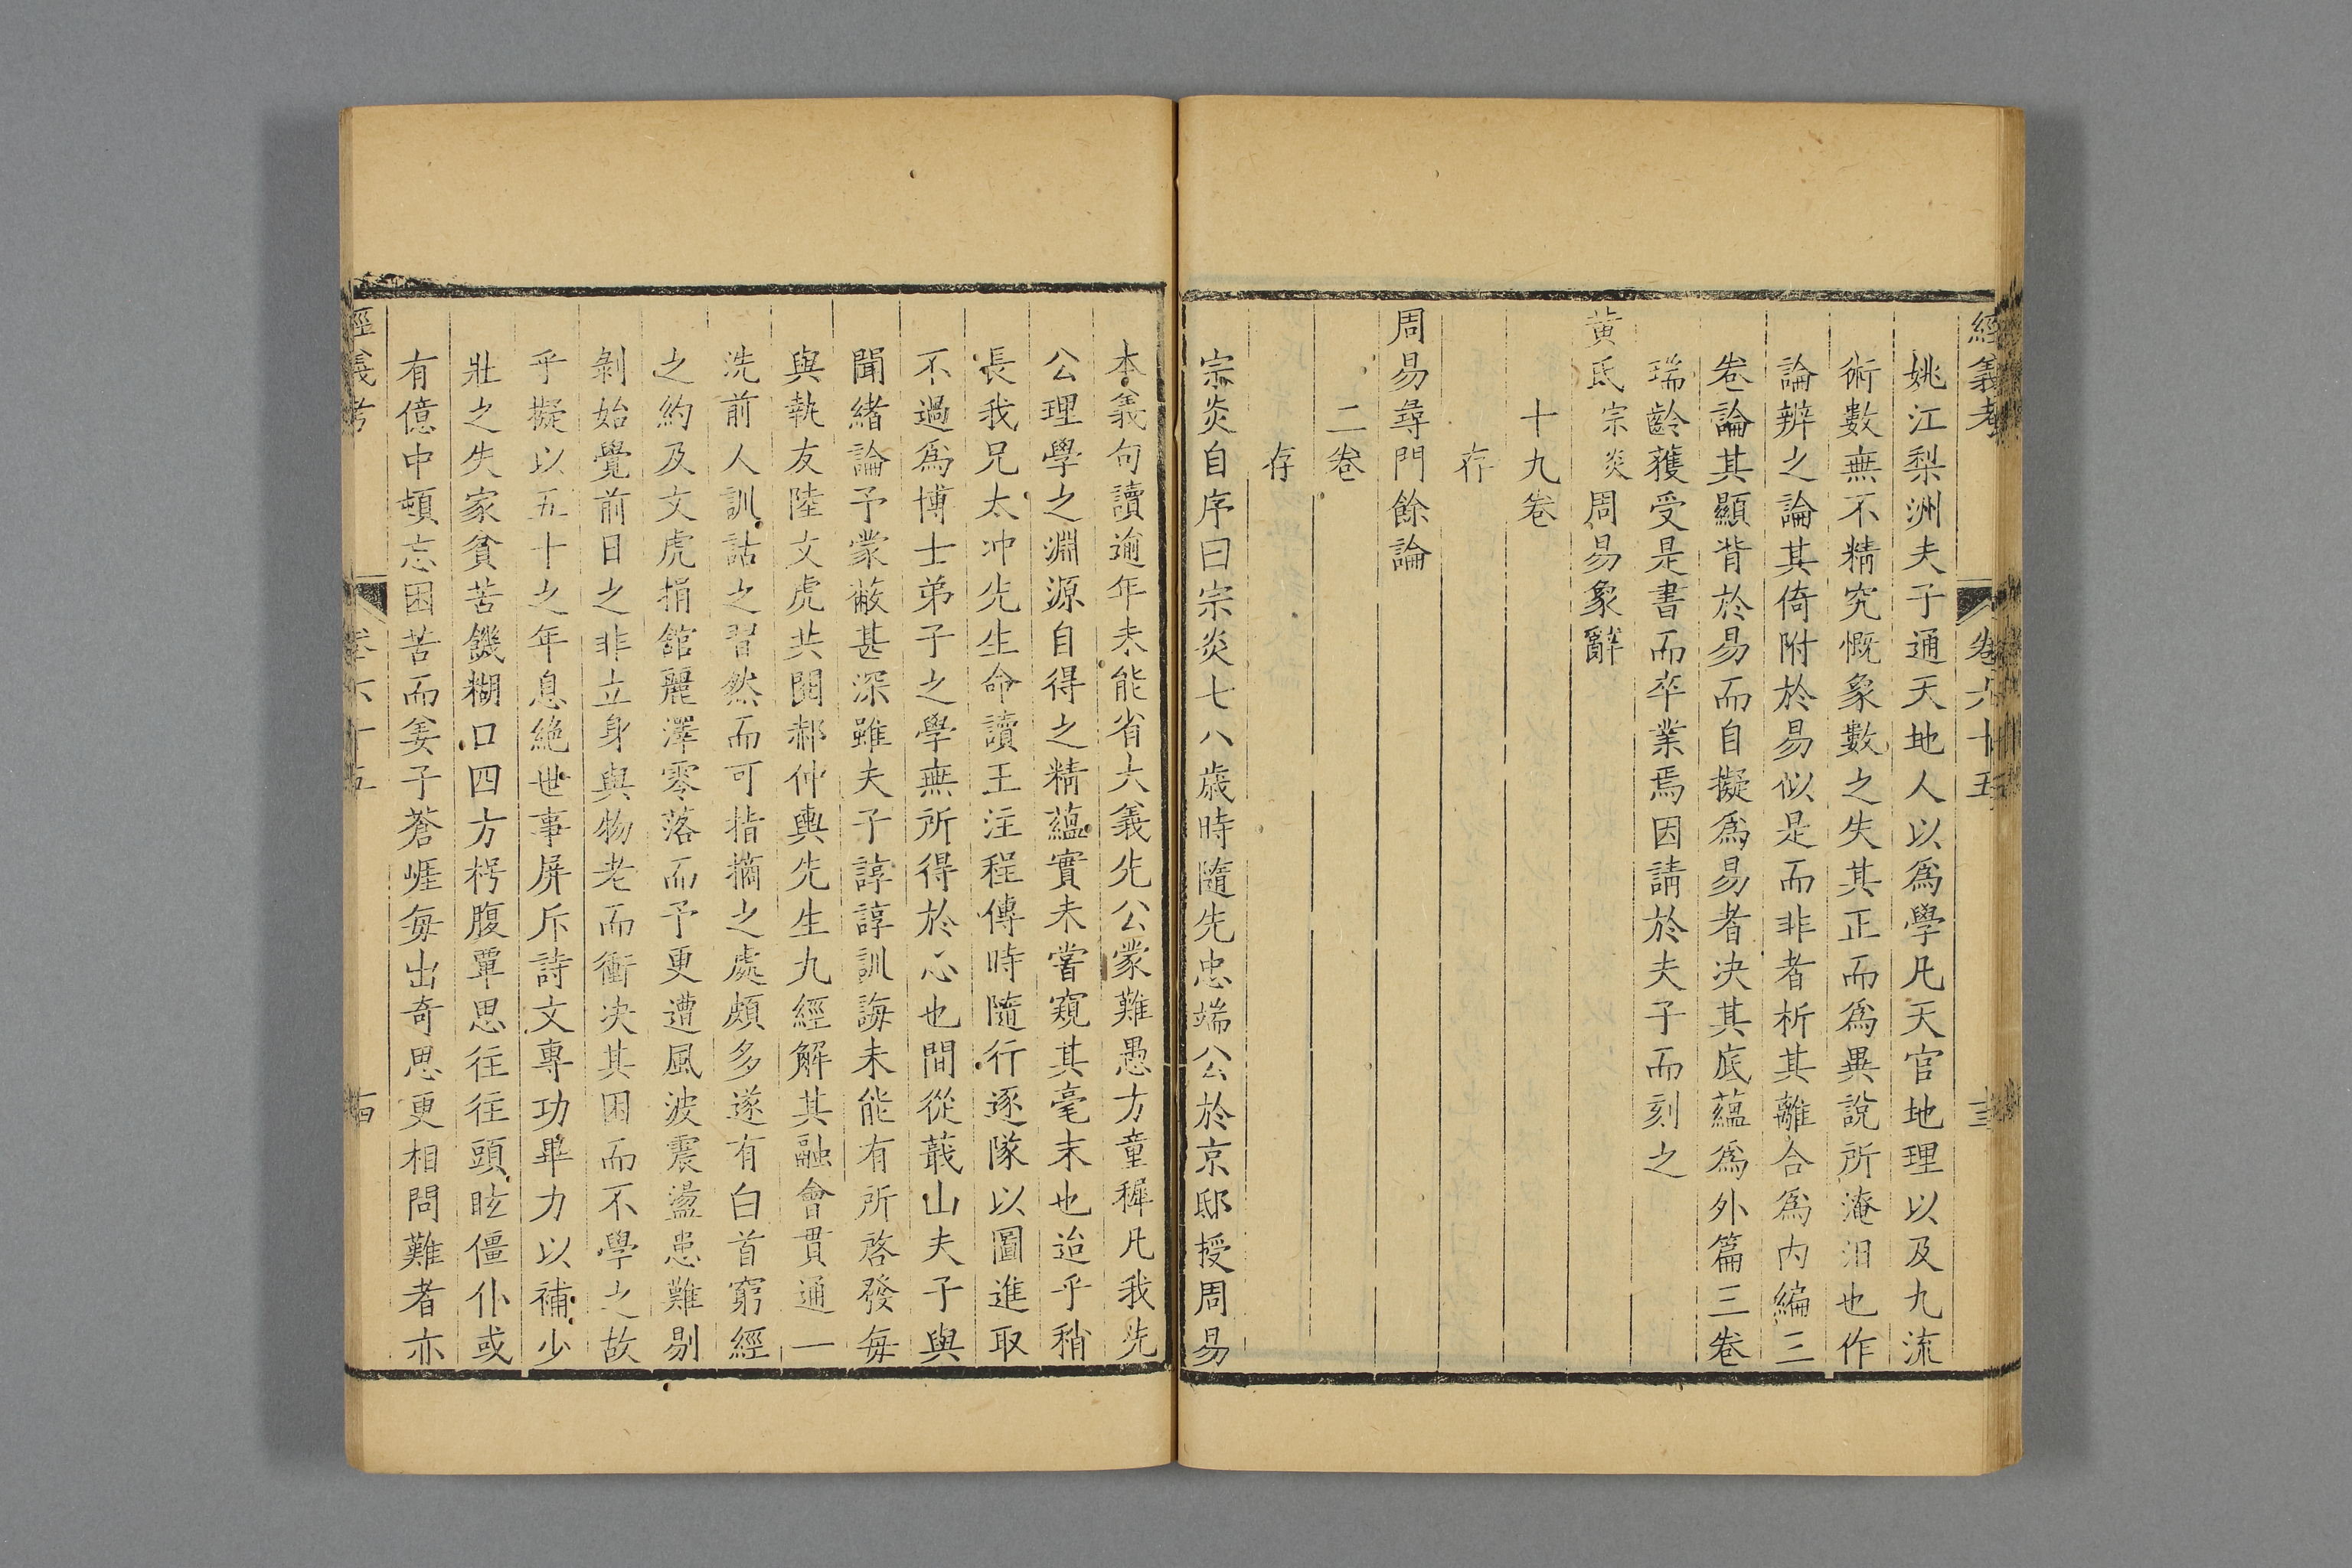 經義考 卷六十五 十三
姚江梨洲夫子通天地人以爲學凡天官地理以及九流
術數無不精究慨象數之失其正而爲異說所淹汨也作
論辨之論其倚附於易似是而非者析其離合爲內編三
卷論其顯背於易而自擬爲易者决其底蘊爲外篇三卷
瑞齡獲受是書而卒業焉因請於夫子而刻之
黃氏宗炎周易象辭
十九卷
存
周易尋門餘論
二卷
存
宗炎自序曰宗炎七八歲時隨先忠端公於京邸授周易
本義句讀逾年未能省大義先公蒙難愚方童穉凡我先
公理學之淵源自得之精蘊實未嘗窺其毫末也迨乎稍
長我兄太冲先生命讀王注程傳時隨行逐隊以圖進取
不過爲博士弟子之學無所得於心也間從蕺山夫子與
聞緒論予蒙蔽甚深雖夫子諄諄訓誨未能有所啓發每
與執友陸文虎共閱郝仲輿先生九經解其融會貫通一
洗前人訓詁之習然而可指摘之處頗多遂有白首窮經
之約及文虎捐舘麗澤零落而予更遭風波震盪患難剔
剝始覺前日之非立身與物老而衝决其困而不學之故
乎擬以五十之年息絕世事屏斥詩文專功畢力以補少
壯之失家貧苦饑糊口四方枵腹覃思往往頭眩僵仆或
有億中頓忘困苦而姜子蒼崖每出奇思更相問難者亦
經義考 卷六十五 十四